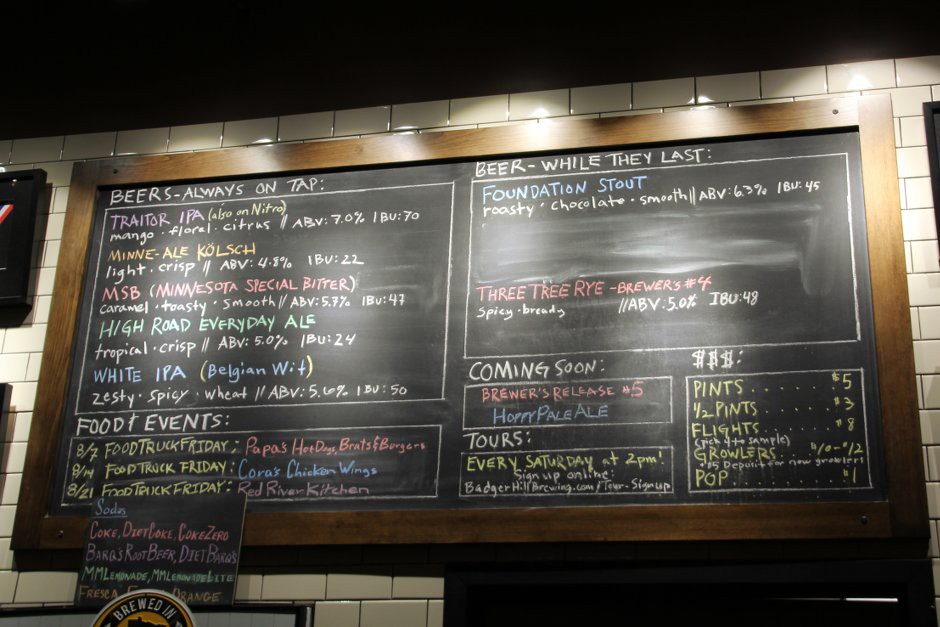 BEERS-ALWAYS ON TAP:
TRAITOR IPA (also on Nitro)
mango · floral · citrus // ABV: 7.0% IBU: 70
MINNE-ALE KÖLSCH
light · crisp // ABV: 4.8% IBU: 22
MSB (MINNESOTA SPECIAL BITTER)
caramel · toasty · smooth // ABV: 5.7% IBU: 47
HIGH ROAD EVERYDAY ALE
tropical · crisp // ABV: 5.0% IBU: 24
WHITE IPA (Belgian Wit)
zesty · spicy · wheat // ABV: 5.6% IBU: 50
FOOD & EVENTS:
8/7 FOOD TRUCK FRIDAY: Papa's Hot Dogs, Brats & Burgers
8/14 FOOD TRUCK FRIDAY: Cora's Chicken Wings
8/21 FOOD TRUCK FRIDAY: Red River Kitchen
BEER-WHILE THEY LAST:
FOUNDATION STOUT
roasty · chocolate · smooth // ABV: 6.3% IBU: 45
THREE TREE RYE - BREWER'S #4
spicy · bready //ABV: 5.0% IBU: 48
COMING SOON:
BREWER'S RELEASE #5
HOPPY PALE ALE
TOURS:
EVERY SATURDAY at 2pm!
Sign up online:
BadgerHillBrewing.com/Tour-Signup
$$$:
PINTS ...... $5
1/2 PINTS .... $3
FLIGHTS .... $8
(pick 4 to sample)
GROWLERS
$5 Deposit for new growlers!
POP ........ $1
Sodas
COKE, DIET COKE, COKE ZERO
BARQ'S ROOT BEER, DIET BARQ'S
MM LEMONADE, MM LEMONADE LITE
FRESCA ORANGE
BREWED IN